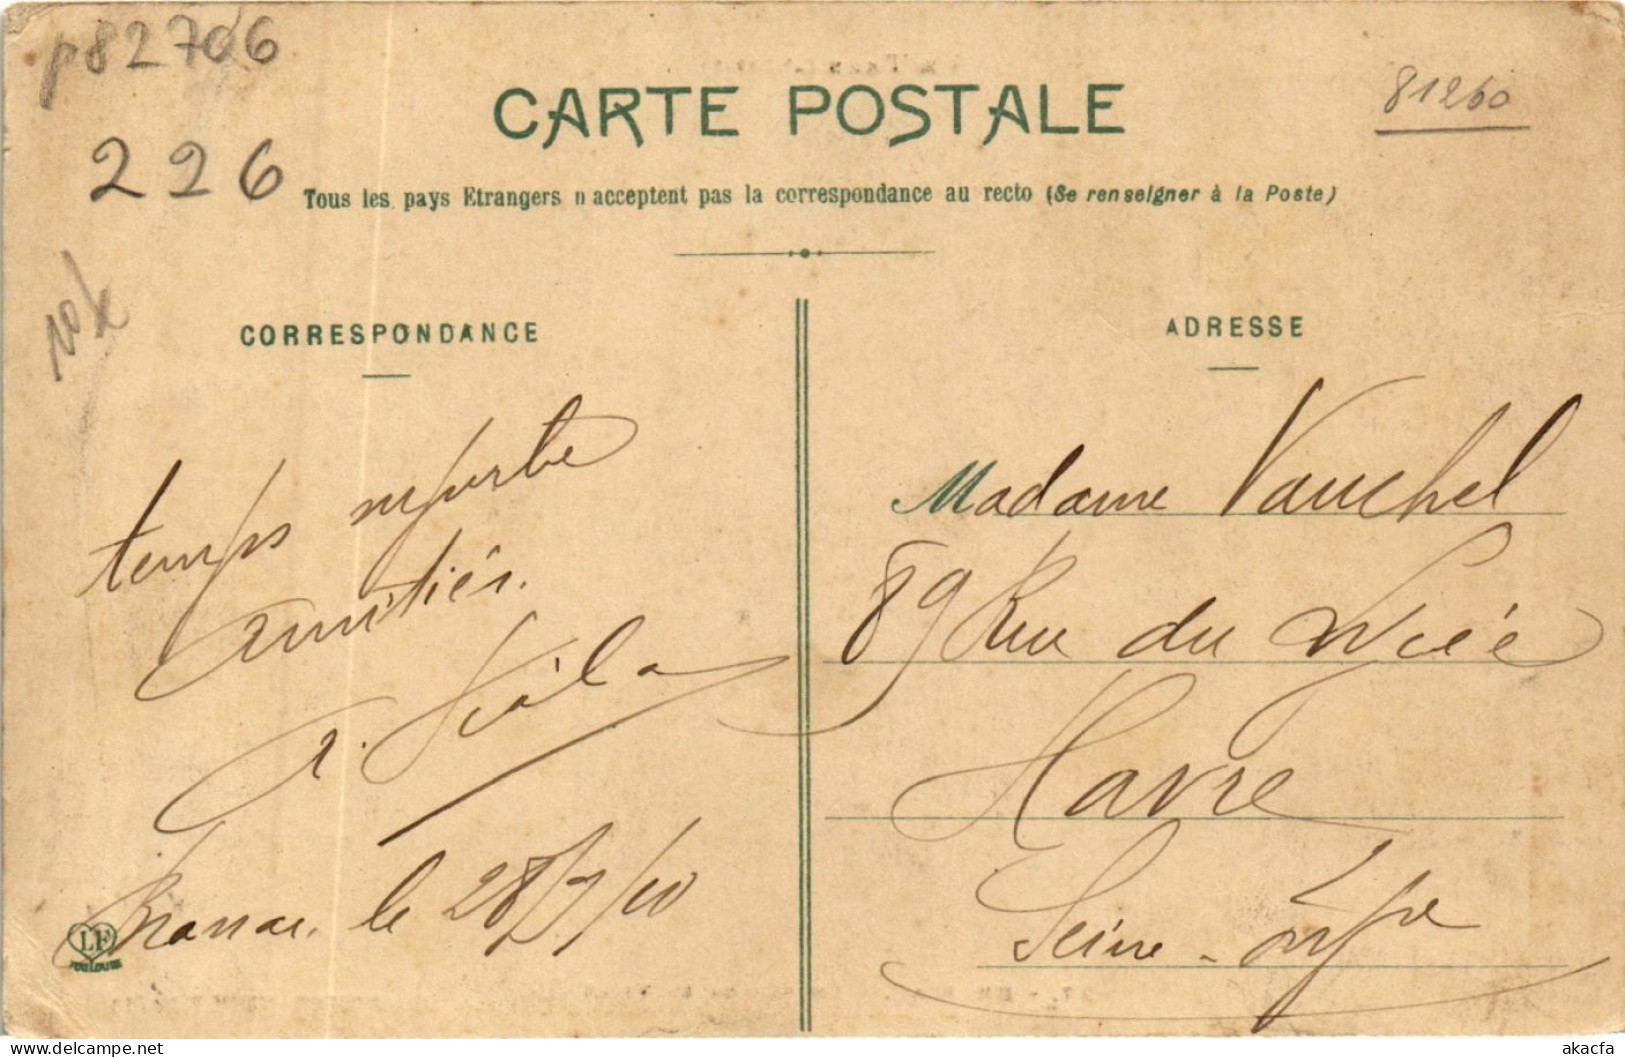 p82706
81260
CARTE POSTALE
226
Tous les pays Etrangers n'acceptent pas la correspondance au recto (Se renseigner à la Poste)
10x
CORRESPONDANCE
temps superbe
amitiés.
le 28/7/10
LF
TOULOUSE
ADRESSE
Madame Vauchel
89 Rue du Lycée
Havre
Seine - Infre
akacfa